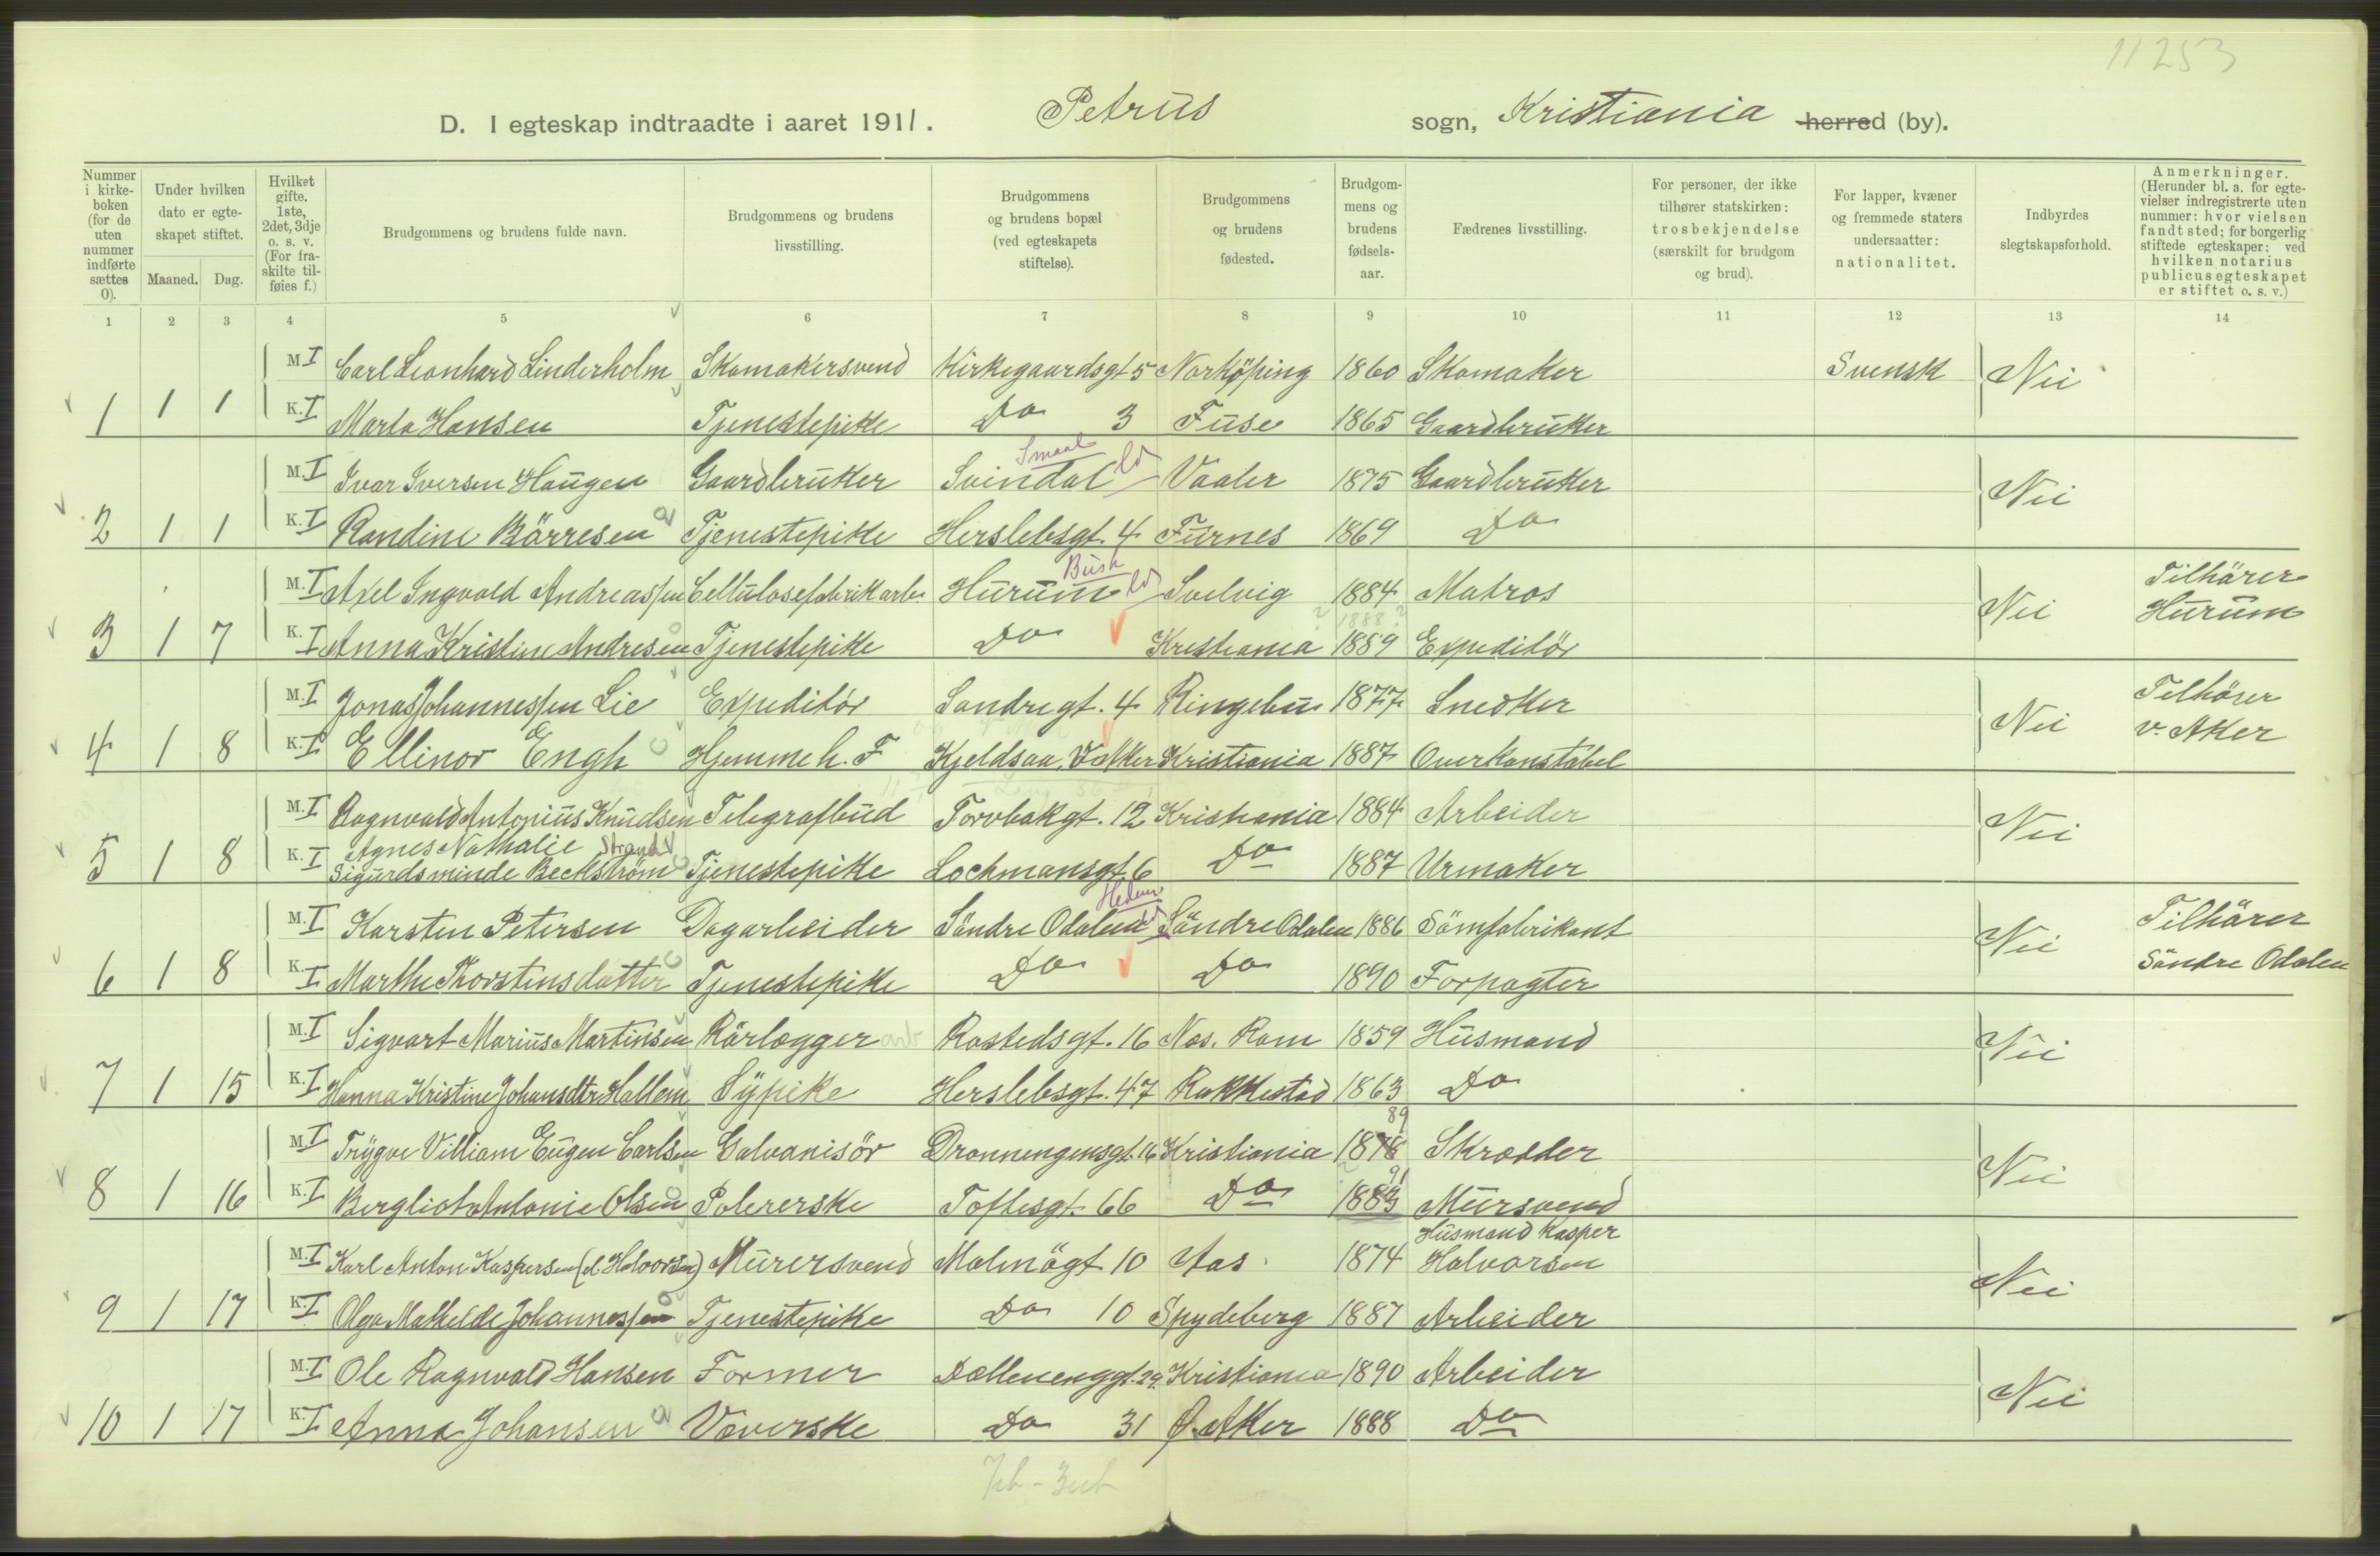 11253
D. I egteskap indtraadte i aaret 1911. Petrus sogn, Kristiania herred (by).
Nummer i kirkeboken (for de uten nummer indførte sættes 0).
Under hvilken dato er egteskapet stiftet.
Maaned. Dag.
Hvilket gifte. 1ste, 2det, 3dje o. s. v. (For fraskilte tilføies f.)
Brudgommens og brudens fulde navn.
Brudgommens og brudens livsstilling.
Brudgommens og brudens bopæl (ved egteskapets stiftelse).
Brudgommens og brudens fødested.
Brudgommens og brudens fødselsaar.
Fædrenes livsstilling.
For personer, der ikke tilhører statskirken: trosbekjendelse (særskilt for brudgom og brud).
For lapper, kvæner og fremmede staters undersaatter: nationalitet.
Indbyrdes slegtskapsforhold.
Anmerkninger. (Herunder bl. a. for egtevielser indregistrerte uten nummer: hvor vielsen fandt sted; for borgerlig stiftede egteskaper: ved hvilken notarius publicus egteskapet er stiftet o. s. v.)
1 2 3 4 5 6 7 8 9 10 11 12 13 14
M. I Carl Leonhard Linderholm Skomakersvend Kirkegaardsgt 5 Norköping 1860 Skomaker Svensk Nei
1 1 1 K. I Marta Hansen Tjenestepike Do 3 Fuse 1865 Gaardbruker
Smaal
M. I Ivar Iversen Haugen Gaardbruker Svindal Vaaler 1875 Gaardbruker Nei
2 1 1 K. I Randine Börresen Tjenestepike Herslebsgt. 4 Furnes 1869 Do
Busk
M. I Axel Ingvald Andreassen Cellulosefabrikarb. Hurum Svelvig 1884 Matros Nei Tilhører Hurum
1888?
3 1 7 K. I Anna Kristine Andresen Tjenestepike Do Kristiania 1889 Expeditör
M. I Jonas Johannessen Lie Expeditör Søndregt. 4 Ringebu 1877 Snedker Nei Tilhører v. Aker
4 1 8 K. I Ellinor Engh Hjemme h. F Kjeldsaa. V. Aker Kristiania 1887 Overkonstabel
M. I Ragnvald Antonius Knudsen Telegrafbud Torvbakgt. 12 Kristiania 1884 Arbeider Nei
Agnes Nathalie Strand
5 1 8 K. I Sigurdsminde Beckström Tjenestepike Lochmansgt. 6 Do 1887 Urmaker
Hedem
M. I Karsten Petersen Dagarbeider Söndre Odalen Söndre Odalen 1886 Sömfabrikant Nei Tilhører Söndre Odalen
6 1 8 K. I Marthe Thorstensdatter Tjenestepike Do Do 1890 Forpagter
M. I Sigvart Marius Martinsen Rörlægger arb Rostedsgt. 16 Nes. Rom 1859 Husmand Nei
7 1 15 K. I Hanna Kristine Johansdtr Hallem Sypike Herslebsgt. 47 Rakkestad 1863 Do
89
M. I Trygve Villiam Eugen Carlsen Galvanisör Dronningensgt. 16 Kristiania 1878 Skrædder Nei
91
8 1 16 K. I Bergliot Antonie Olsen Polererske Toftesgt. 66 Do 1883 Mursvend
Husmand Kasper
M. I Karl Anton Kaspersen (el Halvorsen) Murersvend Malmögt. 10 Aas 1874 Halvorsen Nei
9 1 17 K. I Olga Mathilde Johannessen Tjenestepike Do 10 Spydeberg 1887 Arbeider
M. I Ole Ragnvald Hansen Former Dællenenggt. 29. Kristiania 1890 Arbeider Nei
10 1 17 K. I Anna Johansen Væverske Do 31 Ø. Aker 1888 Do